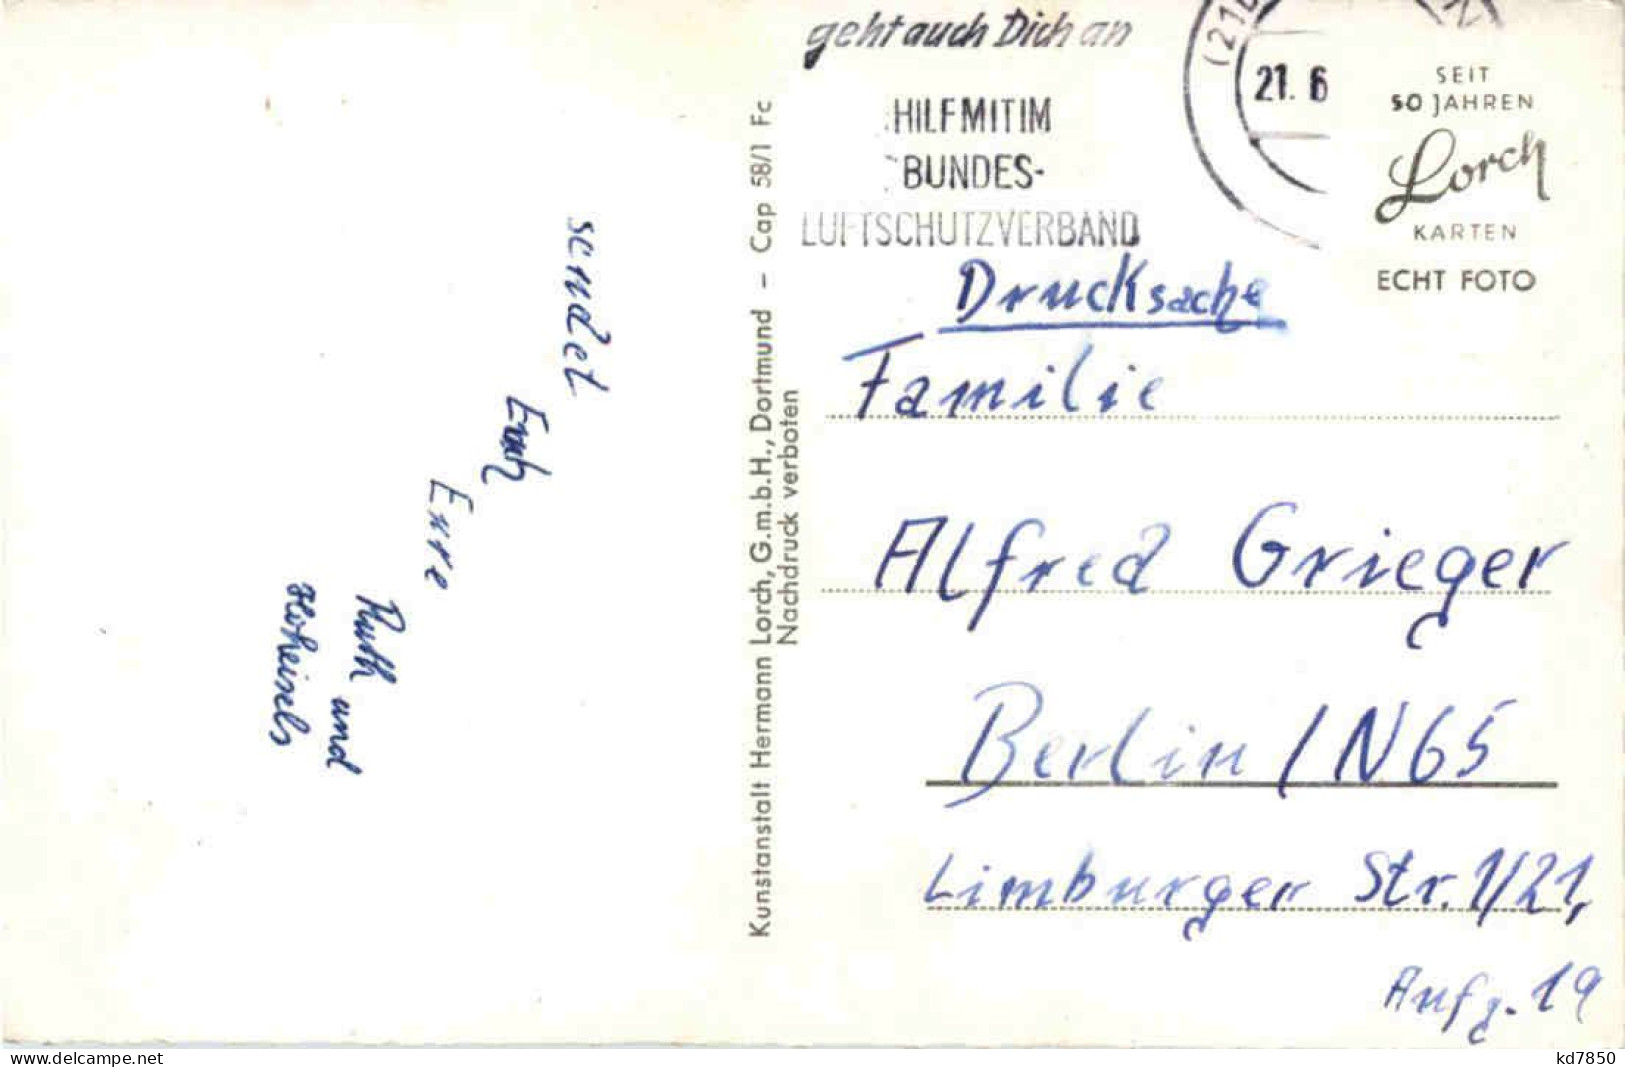 geht auch Dich an
HILF MIT IM
BUNDES-
LUFTSCHUTZVERBAND
(21b
21. 6
SEIT
50 JAHREN
Lorch
KARTEN
ECHT FOTO
sendet
Euch
Eure
Ruth und
Hoheisels
Kunstanstalt Hermann Lorch, G.m.b.H., Dortmund – Cap 58/1 Fc
Nachdruck verboten
Drucksache
Familie
Alfred Grieger
Berlin / N65
Limburger Str. 1/21,
Aufg. 19
delcampe.net
kd7850